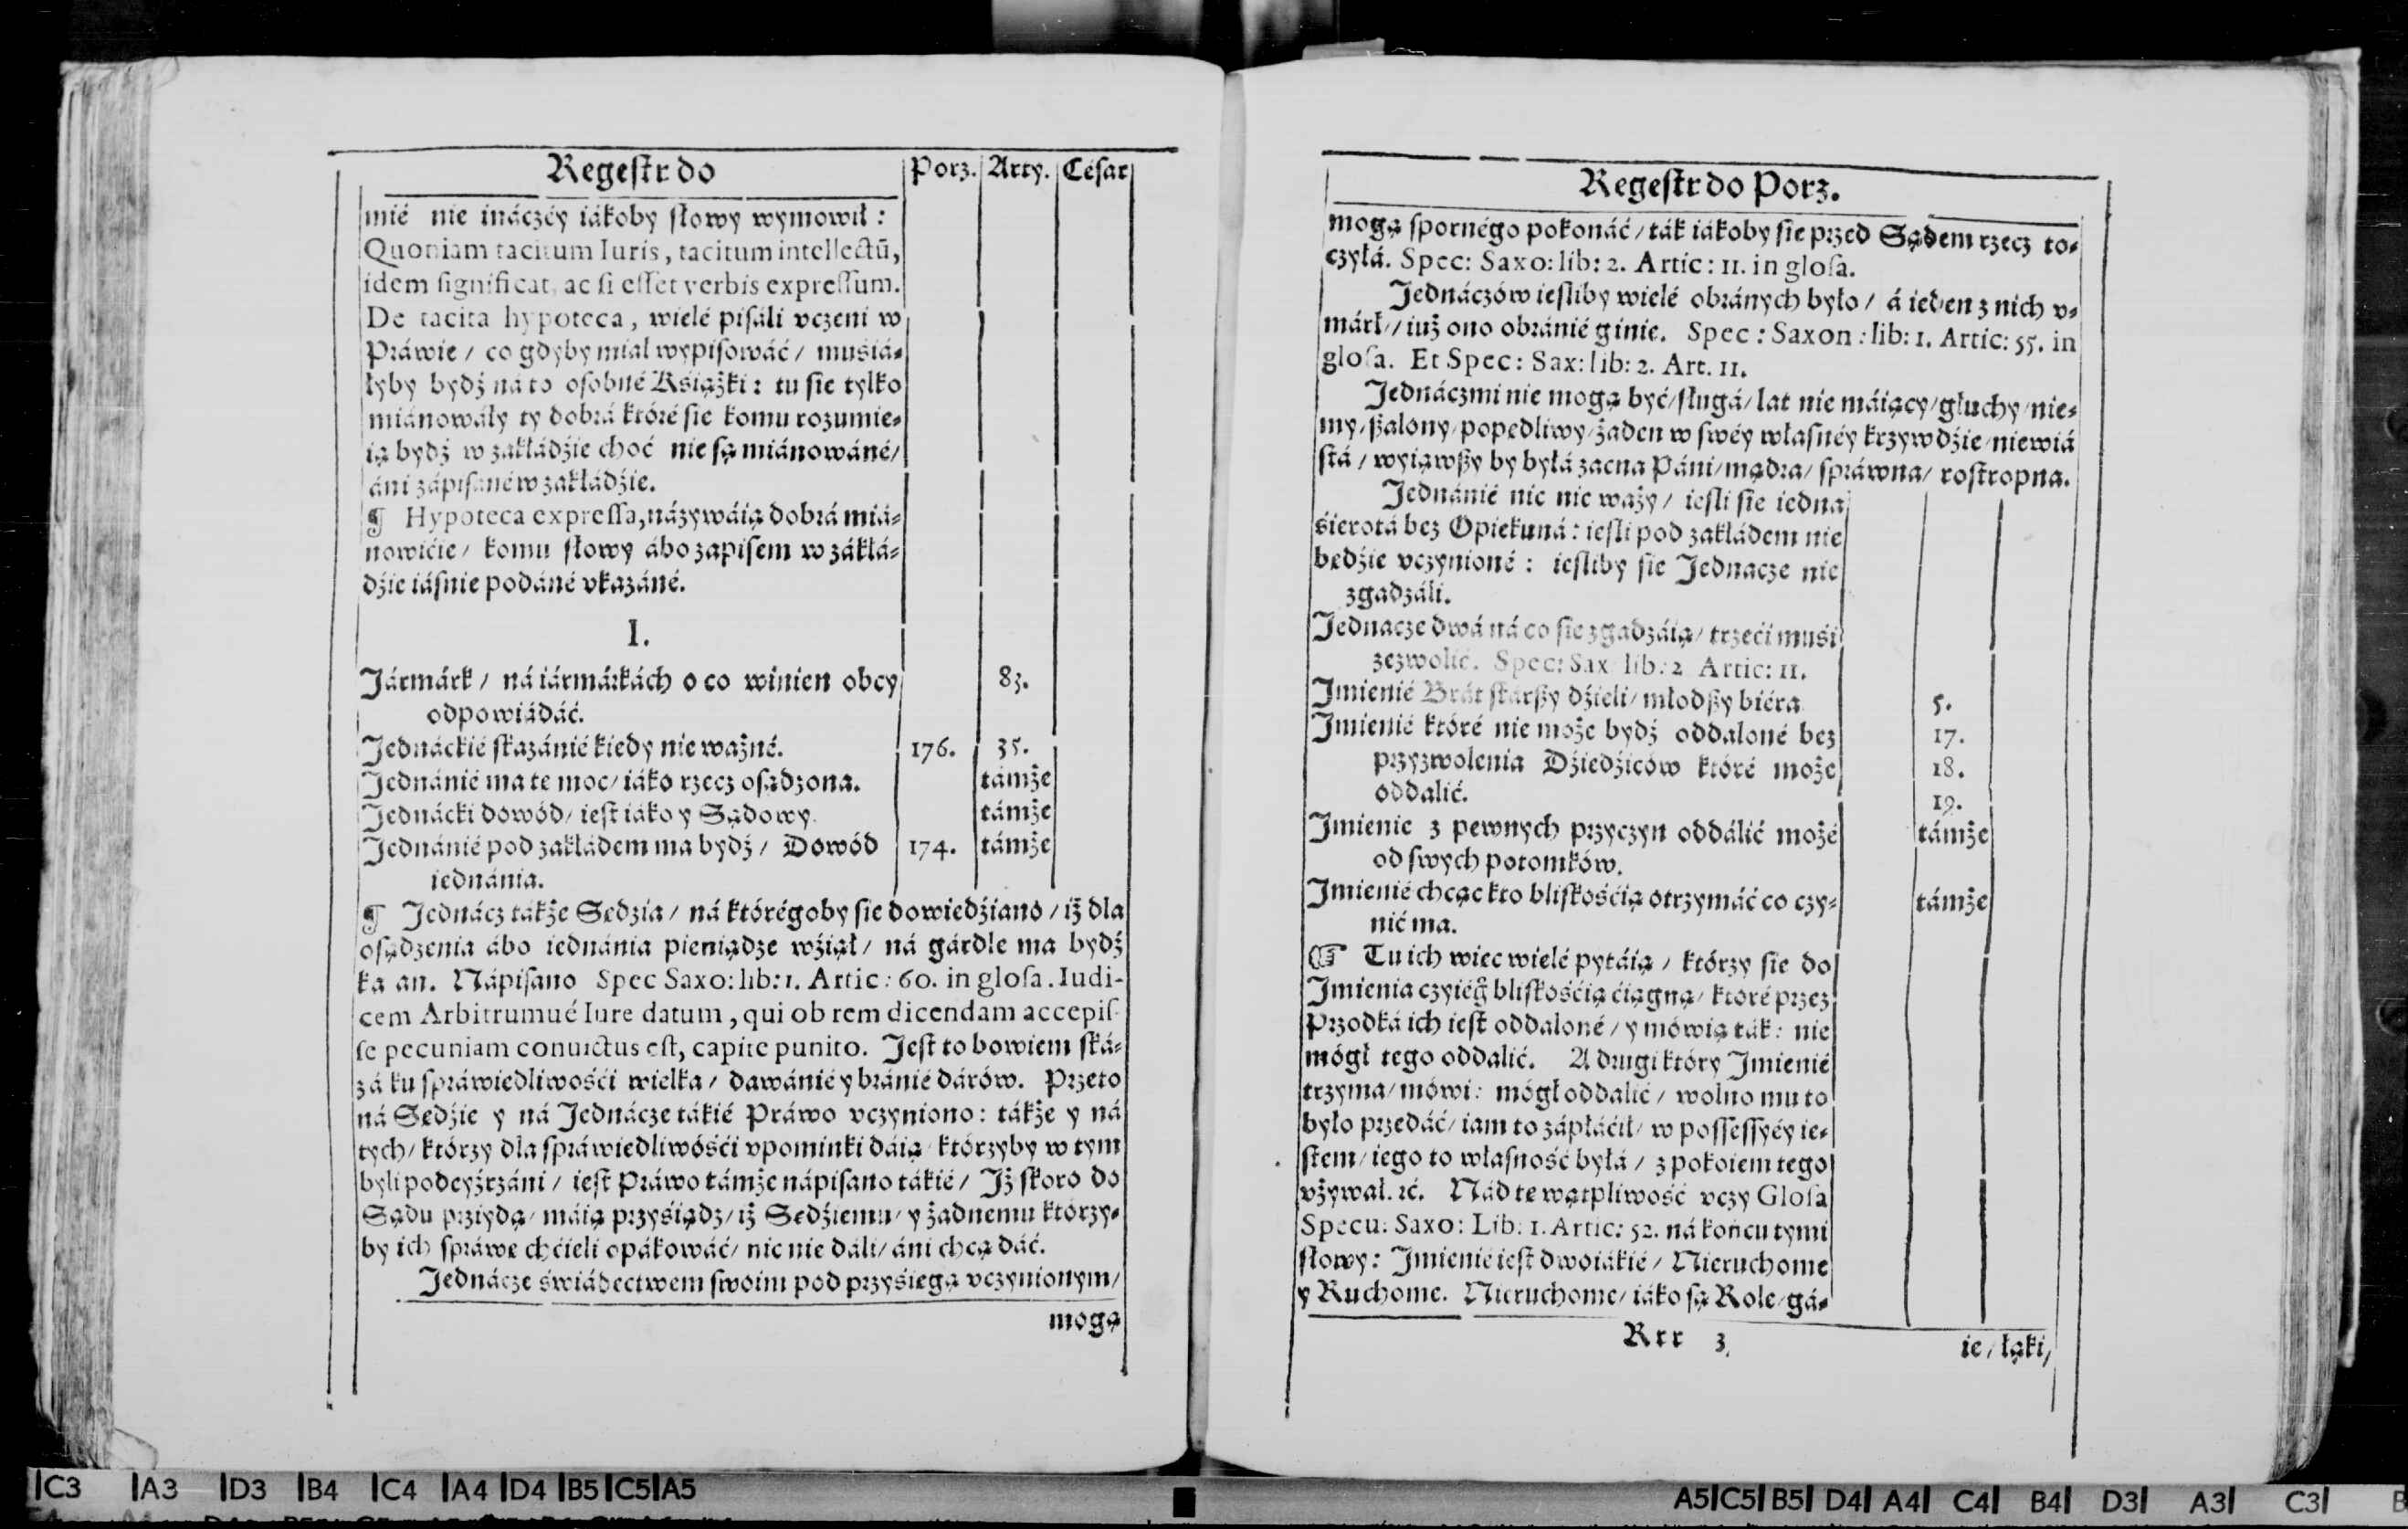 Regestr do
Porz. Arty. César
mié nie ináczéy iákoby słowy wymowił:
Quoniam tacitum Iuris, tacitum intellectū,
idem significat, ac si esset verbis expressum.
De tacita hypoteca, wielé pisáli vczeni w
Práwie / co gdyby miał wypisowáć / musiá-
łyby bydź ná to osobné Książki: tu sie tylko
miánowáły ty dobrá któré sie komu rozumie-
ią bydź w zakłádźie choć nie są miánowáné /
áni zápisáné w zakłádźie.
¶ Hypoteca expressa, názywáią dobrá miá-
nowićie / komu słowy ábo zapisem w zákłá-
dźie iásnie podáné vkazáné.
I.
Jármárk / ná iármárkách o co winien obcy 83.
odpowiádáć.
Jednáckié skazánié kiedy nie ważné. 176. 35.
Jednánié ma te moc / iáko rzecz osądzona. támże
Jednácki dowód / iest iáko y Sądowy. támże
Jednánié pod zakłádem ma bydź / Dowód 174. támże
iednánia.
¶ Jednácz tákże Sedzia / ná którégoby sie dowiedźiano / iż dla
osądzenia ábo iednánia pieniądze wźiął / ná gárdle ma bydź
ka an. Nápisano Spec Saxo: lib: 1. Artic: 60. in glosa. Iudi-
cem Arbitrumué Iure datum, qui ob rem dicendam accepis-
se pecuniam conuictus est, capite punito. Jest to bowiem ská-
zá ku spráwiedliwośći wielka / dawánié y bránié dárów. Przeto
ná Sedźie y ná Jednácze tákié Práwo vczyniono: tákże y ná
tych / którzy dla spráwiedliwóśći vpominki dáią / którzyby w tym
byli podeyźrzáni / iest Práwo támże nápisano tákié / Jż skoro do
Sądu prziydą / máią przysiądz / iż Sedźiemu / y żadnemu którzy-
by ich spráwe chćieli opákowáć / nic nie dáli / áni chcą dáć.
Jednácze świádectwem swoim pod przysiegą vczynionym /
mogą
Regestr do Porz.
mogą spornégo pokonáć / ták iákoby sie przed Sądem rzecz to-
czyłá. Spec: Saxo: lib: 2. Artic: 11. in glosa.
Jednáczów iesliby wielé obránych było / á ieden z nich v-
márł / iuż ono obránié ginie. Spec: Saxon: lib: 1. Artic: 55. in
glosa. Et Spec: Sax: lib: 2. Art. 11.
Jednáczmi nie mogą być / sługá / lat nie máiący / głuchy / nie-
my / szalony / popedliwy / żaden w swéy własnéy krzywdźie / niewiá
stá / wyiąwszy by byłá zacna Páni / mądra / spráwna / rostropna.
Jednánié nic nie waży / iesli sie iedna
śierotá bez Opiekuná: iesli pod zakłádem nie
będźie vczynioné: iesliby sie Jednacze nie
zgadzáli.
Jednacze dwá ná co sie zgadzáią / trzeći muśi
zezwolić. Spec: Sax lib: 2 Artic: 11.
Jmienié Brát stárszy dźieli / młodszy biéra 5.
Jmienié któré nie może bydź oddaloné bez 17.
przyzwolenia Dźiedźiców któré może 18.
oddalić. 19.
Jmienie z pewnych przyczyn oddálić możé támże
od swych potomków.
Jmienié chcąc kto bliskośćią otrzymáć co czy- támże
nić ma.
☞ Tu ich wiec wielé pytáią / którzy sie do
Jmienia czyiég̃ bliskośćią ćiągną / któré przez
Przodká ich iest oddaloné / y mówią ták: nie
mógł tego oddalić. A drugi który Jmienié
trzyma / mówi: mógł oddalić / wolno mu to
było przedáć / iam to zápłáćił / w possessyéy ie-
stem / iego to własność byłá / z pokoiem tego
vżywał. ꝛć. Nád te wątpliwość vczy Glosa
Specu: Saxo: Lib: 1. Artic: 52. ná końcu tymi
słowy: Jmienié iest dwoiákié / Nieruchome
y Ruchome. Nieruchome / iáko są Role / gá-
Rrr 3
ie / łąki /
C3 A3 D3 B4 C4 A4 D4 B5 C5 A5
A5 C5 B5 D4 A4 C4 B4 D3 A3 C3